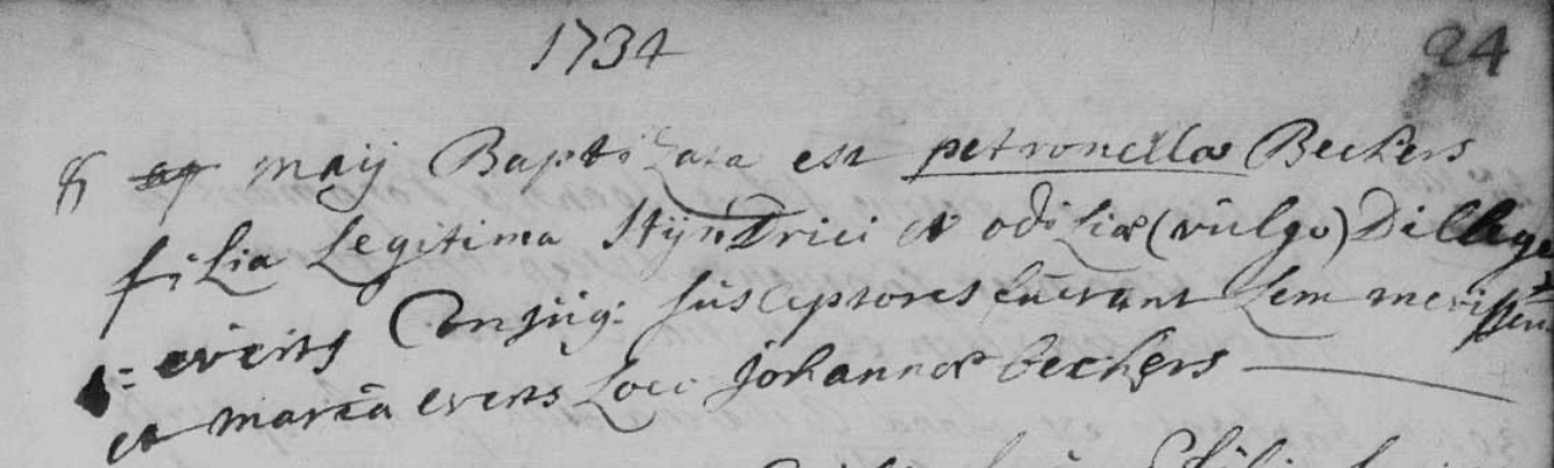 1734 24
8 maij Baptizata est petronella Beckers
filia Legitima Hijndrici et odiliæ (vulgo) Dillige
everts Conjug: susceptores fuerunt Lem merissen
et maria everts Loco johannæ beckers